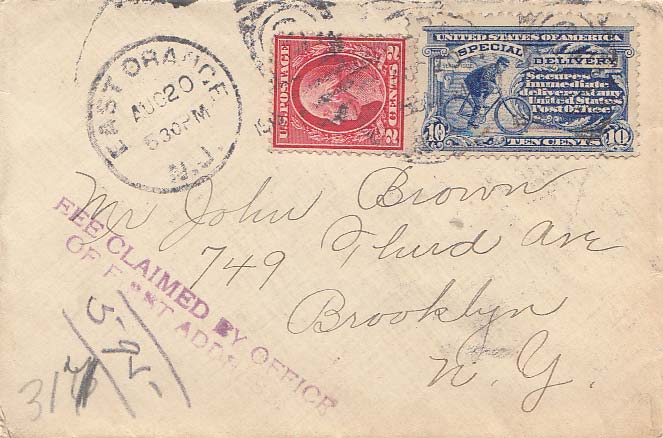 EAST ORANGE
AUG 20
630PM
N.J.
U.S. POSTAGE
2 CENTS 2
UNITED STATES OF AMERICA
SPECIAL DELIVERY
Secures
immediate
delivery at any
United States
Post Office
10 TEN CENTS 10
Mr John Brown
749 Third Ave
Brooklyn
N. Y.
FEE CLAIMED BY OFFICE
OF FIRST